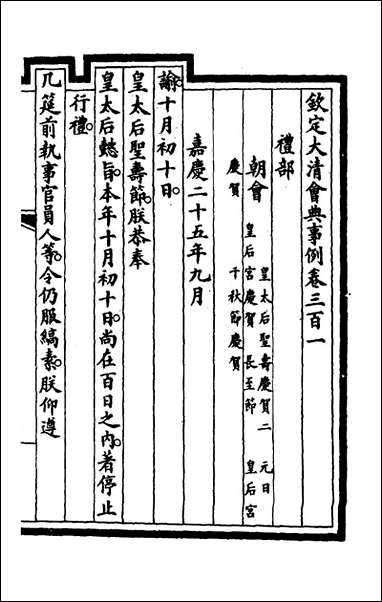 欽定大清會典事例卷三百一
禮部
朝會 皇太后聖壽慶賀二 元日
皇后宮慶賀 長至節 皇后宮
慶賀 千秋節慶賀
嘉慶二十五年九月
諭。十月初十日。
皇太后聖壽節。朕恭奉
皇太后懿旨。本年十月初十日。尚在百日之內。著停止
行禮。
几筵前執事官員人等。令仍服縞素。朕仰遵